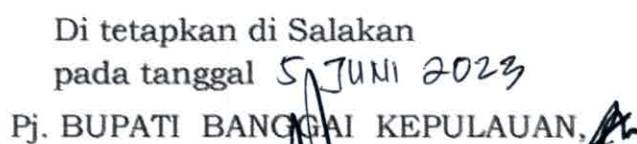 Di tetapkan di Salakan
pada tanggal 5 JUNI 2023
Pj. BUPATI BANGGAI KEPULAUAN,